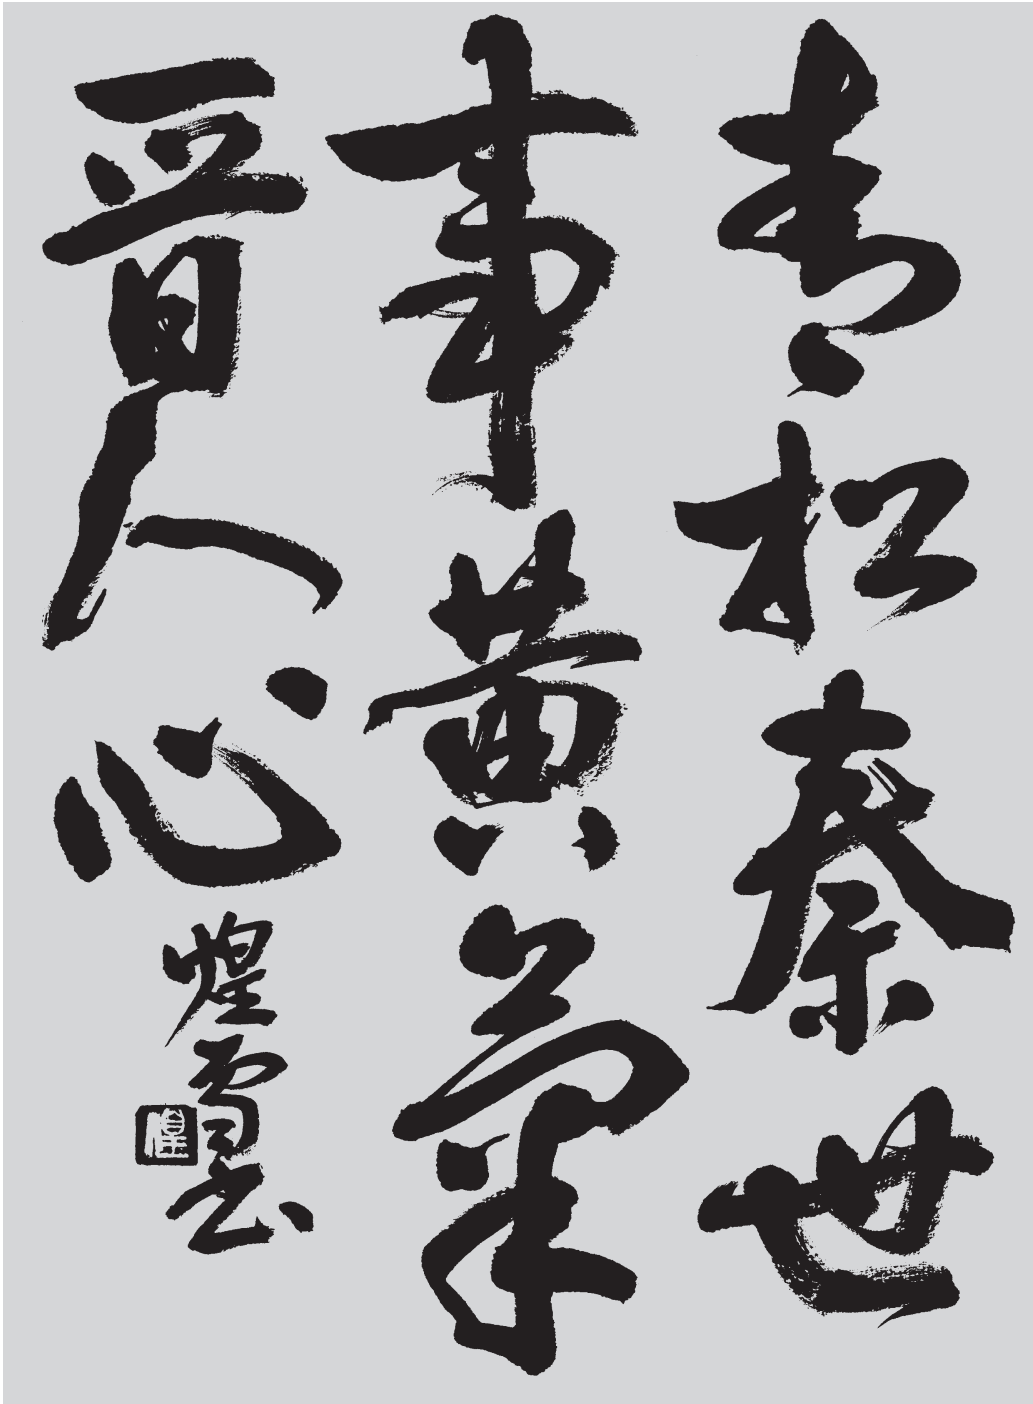 青松秦世
事黄菊
晋人心
煌